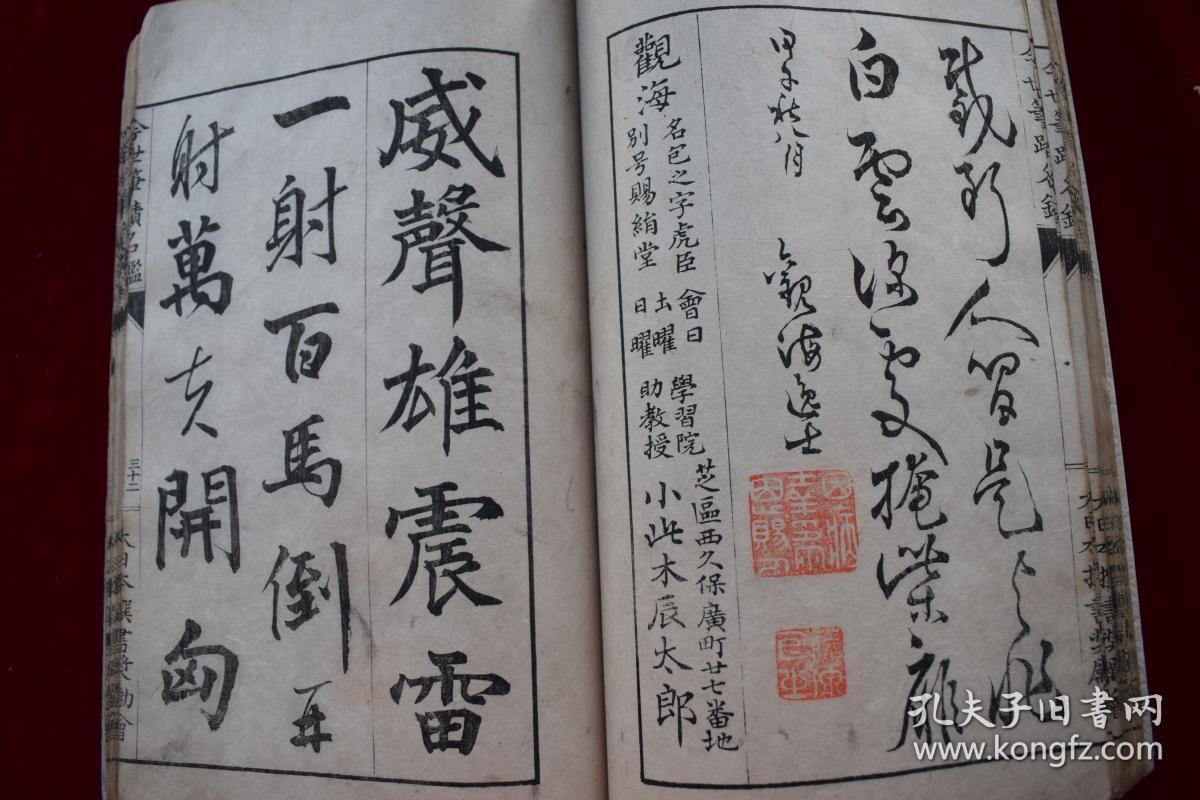 人間是與非
白雲深處掩柴扉
甲子秋八月 觀海逸士
觀海 名包之字虎臣 別号賜絹堂
會日 土曜 日曜
學習院 助教授
芝區西久保廣町廿七番地
小此木辰太郎
威聲雄震雷
一射百馬倒再
射萬夫開匈
今世筆蹟名鑑
三十二
大日本選書奬勵會
孔夫子旧书网
www.kongfz.com